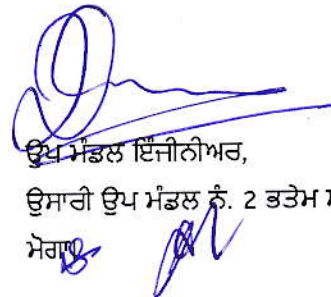 ਉਪ ਮੰਡਲ ਇੰਜੀਨੀਅਰ,
ਉਸਾਰੀ ਉਪ ਮੰਡਲ ਨੰ. 2 ਭਤੇਮ
ਮੋਗਾ